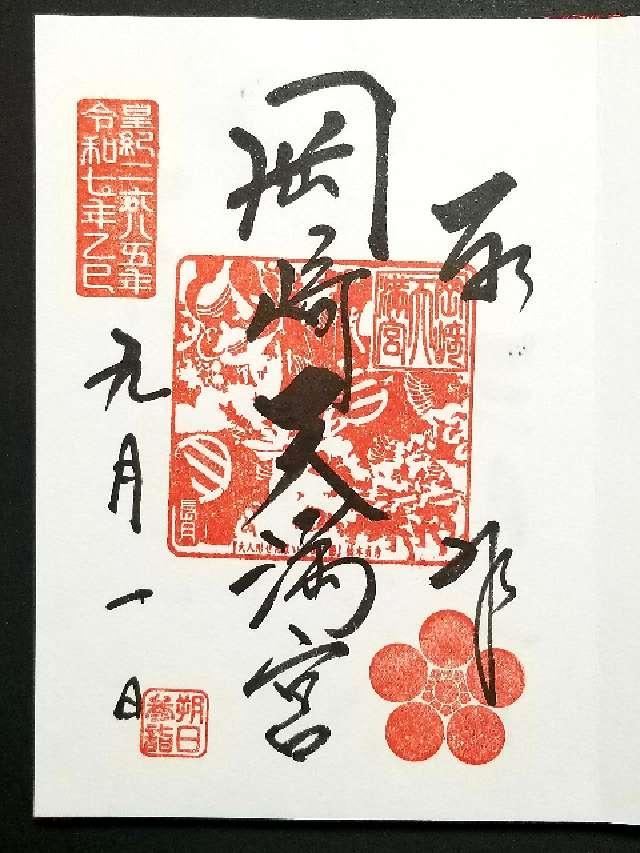 奉拝
岡崎天満宮
岡崎天満宮
長月
皇紀二六八五年
令和七年乙巳
九月一日
朔日
参詣